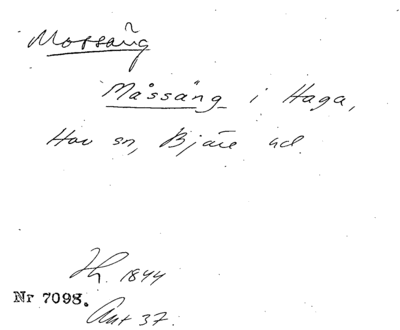 Mossäng
Måssäng i Haga,
Hov sn, Bjäre hd
Th. 1844
Nr 7098.
Ant 37.